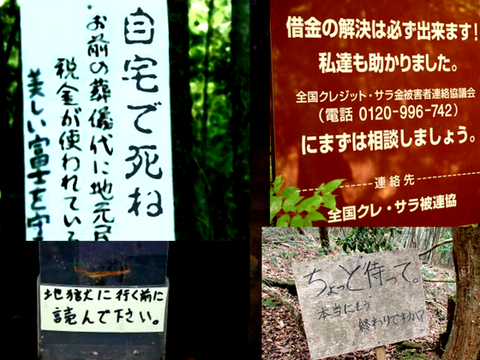 自宅で死ね
・お前の葬儀代に地元民
税金が使われている
美しい富士を守
地獄に行く前に
読んで下さい。
借金の解決は必ず出来ます!
私達も助かりました。
全国クレジット・サラ金被害者連絡協議会
(電話 0120-996-742)
にまずは相談しましょう。
連絡先
全国クレ・サラ被連協
ちょっと待って。
本当にもう
終わりですか?